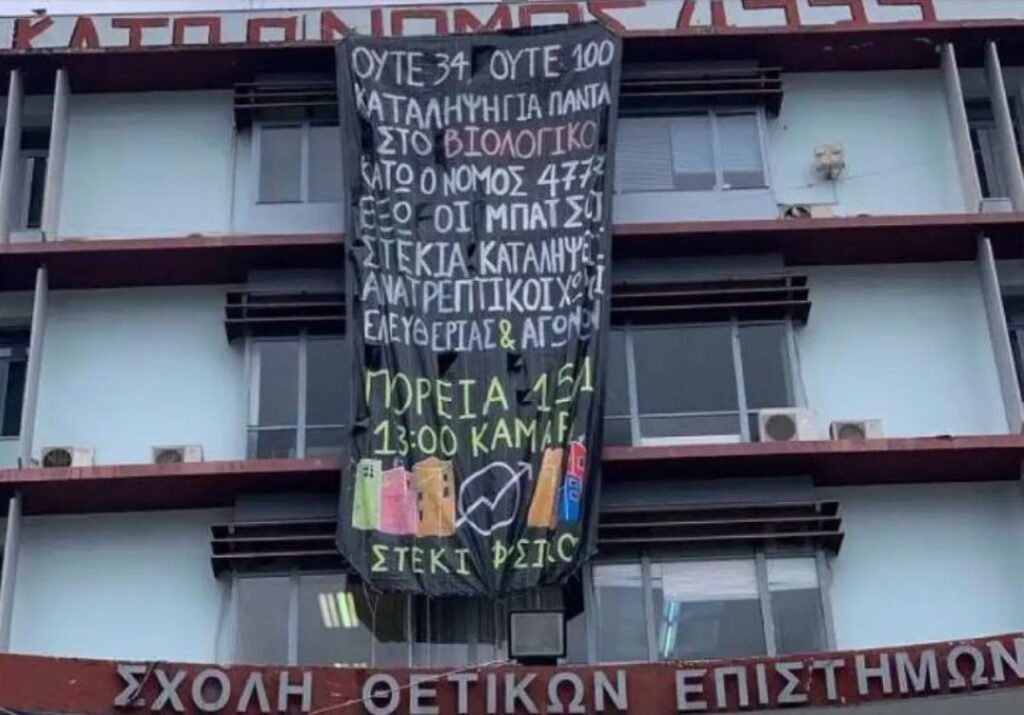 ΚΑΤΩ Ο ΝΟΜΟΣ
ΟΥΤΕ 34 ΟΥΤΕ 100
ΚΑΤΑΛΗΨΗ ΓΙΑ ΠΑΝΤΑ
ΣΤΟ ΒΙΟΛΟΓΙΚΟ
ΚΑΤΩ Ο ΝΟΜΟΣ
ΕΞΩ ΟΙ ΜΠΑΤΣΟΙ
ΣΤΕΚΙΑ ΚΑΤΑΛΗΨΕΙΣ
ΑΝΑΤΡΕΠΤΙΚΟΙ ΧΩΡΟΙ
ΕΛΕΥΘΕΡΙΑΣ & ΑΓΩΝΩΝ
ΠΟΡΕΙΑ 15/1
13:00 ΚΑΜΑΡΑ
ΣΤΕΚΙ ΦΥΣΙΚΟ
ΣΧΟΛΗ ΘΕΤΙΚΩΝ ΕΠΙΣΤΗΜΩΝ